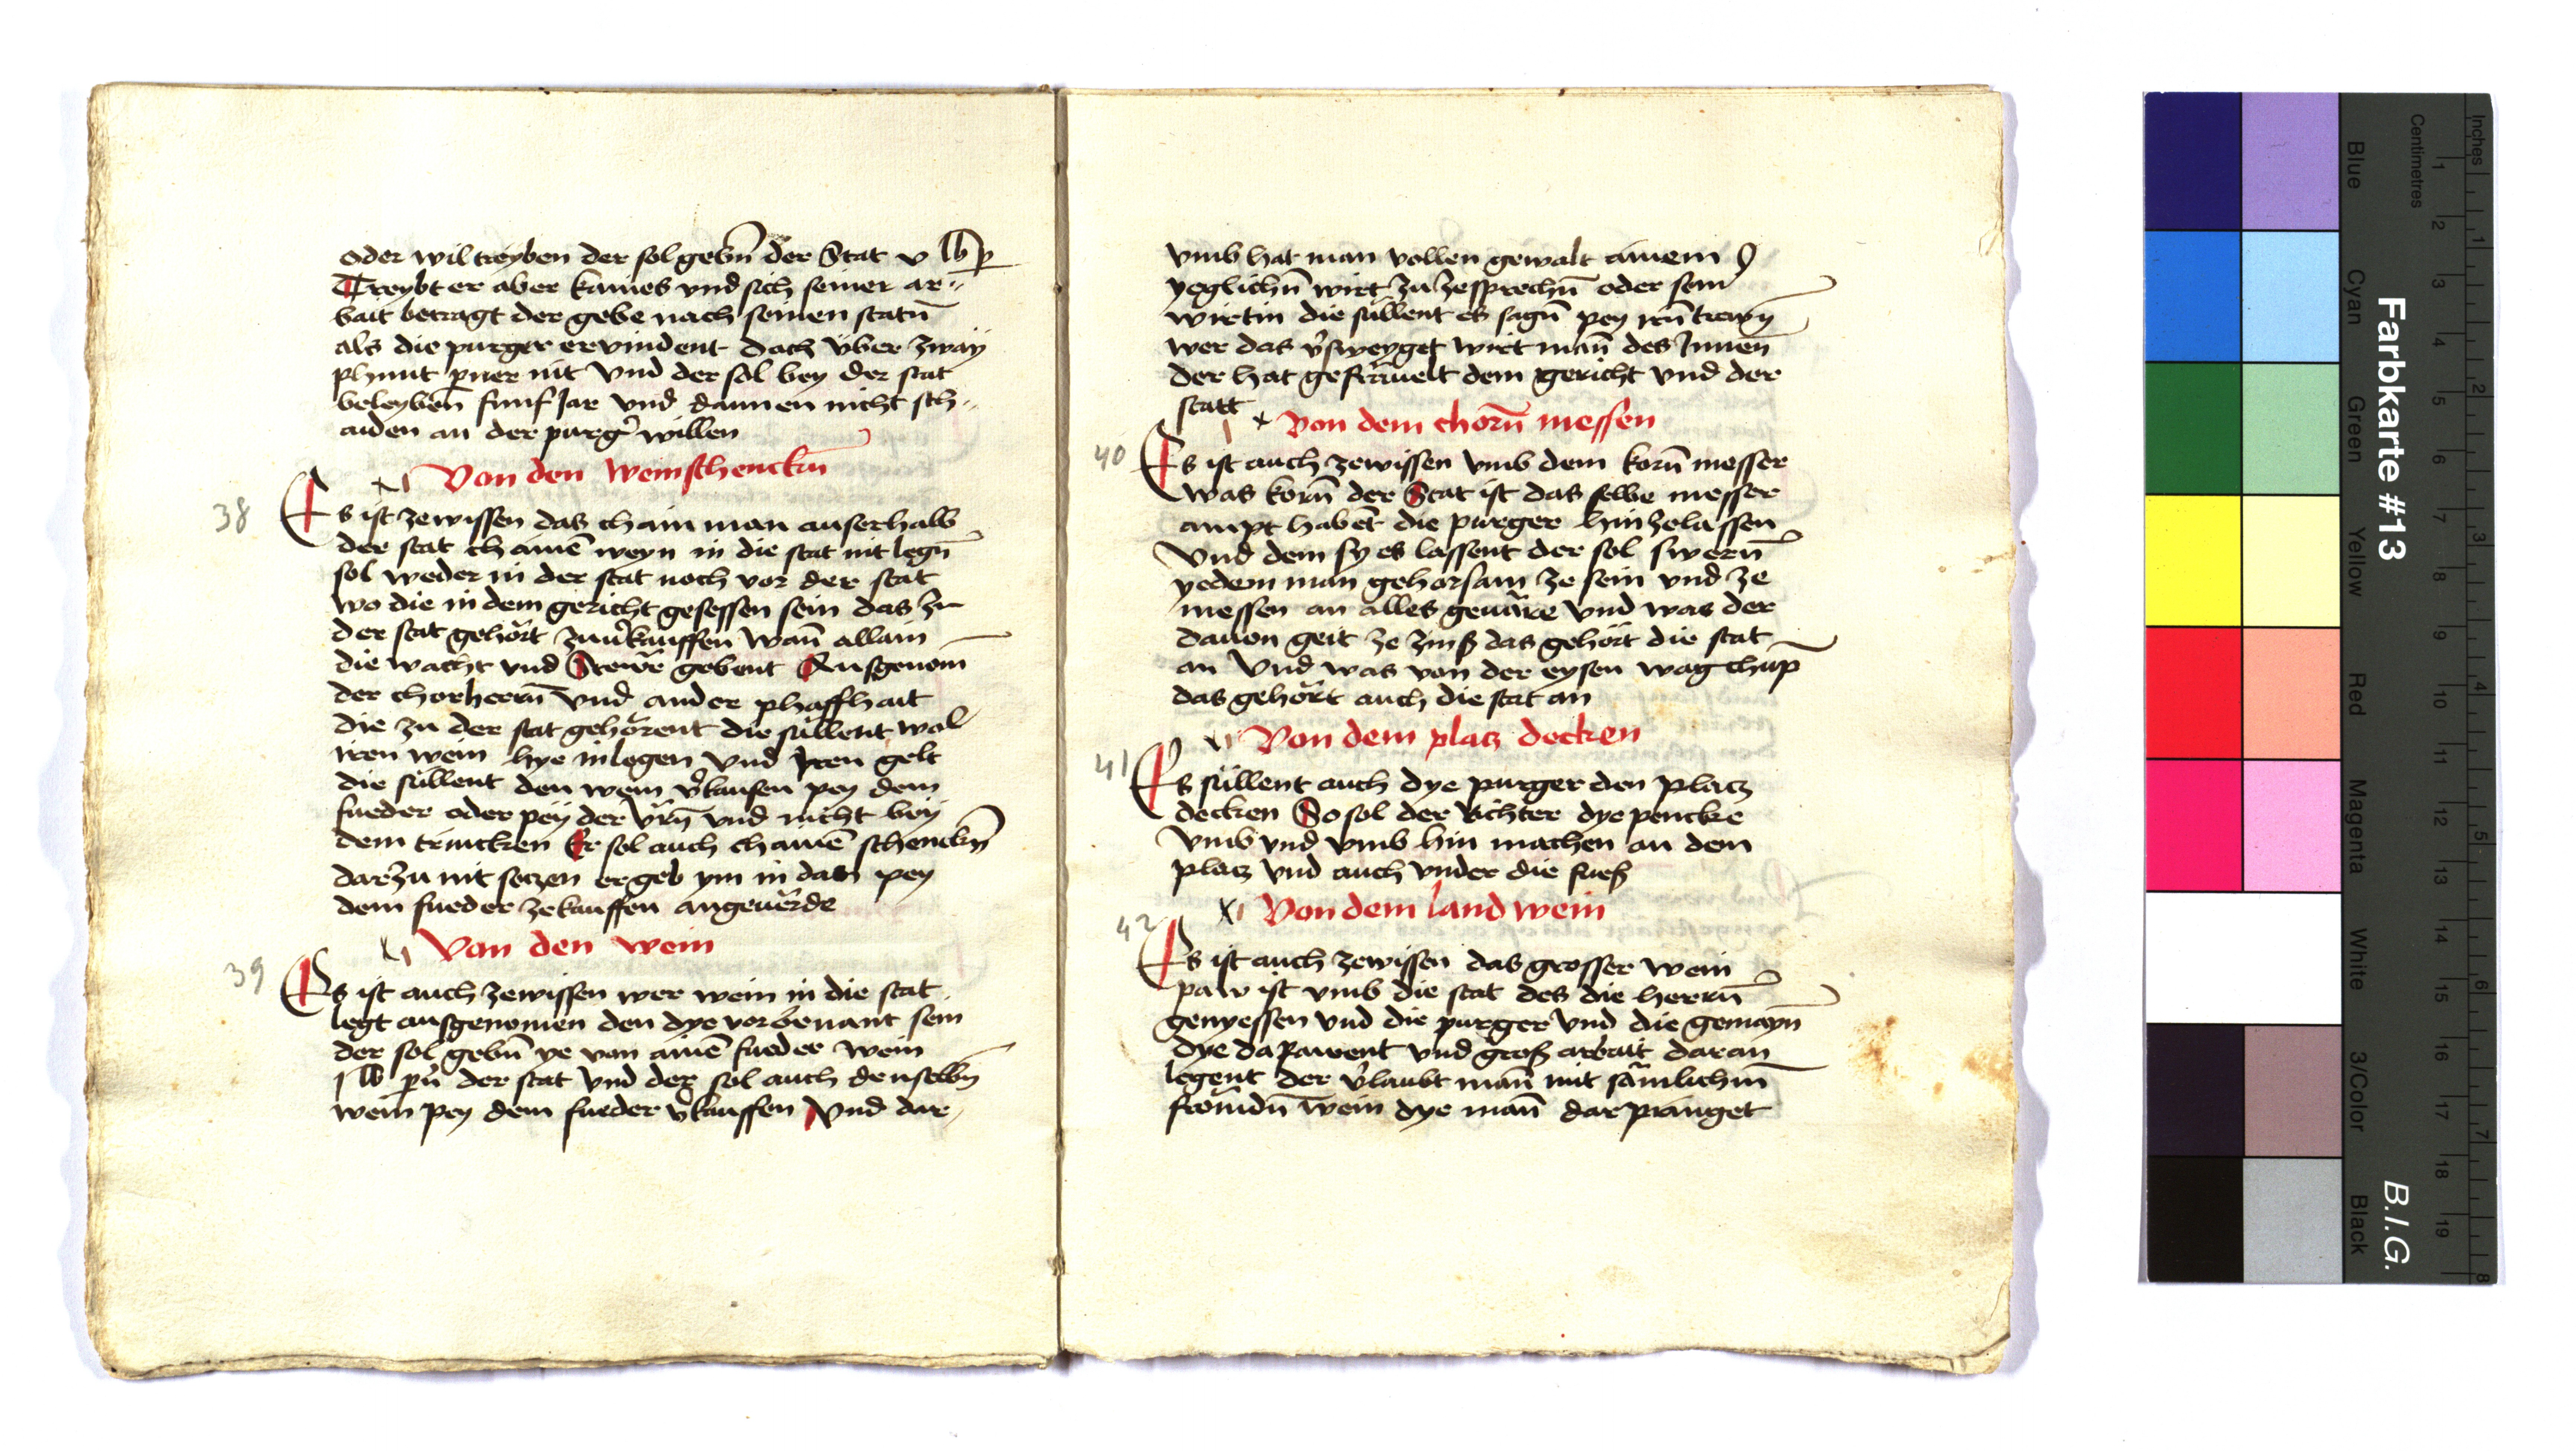 oder wil treyben der sol gebn̄ der Stat v lb p
Treybt er aber kaines vnd sich seiner ar„
bait betragt der gebe nach seinen statn̄
als die purger ervindent doch über zway
phunt pner nit Vnd der sol bey der stat
beleyben̄ funf Jar vnd dannen nicht sch„
aiden an der purg̉ willen
Von den weinschenckn̄
38 Es ist zewissen das chain man auserhalb
der stat chainē weyn in die stat nit legn̄
sol weder in der stat noch vor der stat
wo die in dem gericht gesessen sein das zu
der stat gehört zuuk̉auffen wan̄ allain
die wacht vnd Stewr gebent Ausgenom
der chorherrn̄ vnd ander phaffhait
die zu der stat gehörent die süllent wol
iren wein hye inlegen vnd Jren gelt
die süllent den wein v̉kaufen pey dem
fueder oder pey der vrn̄ vnd nicht bey
dem trincken Er sol auch chainē schenckn̄
darzu nit seczen er geb ym in dan pey
dem fueder zekauffen angeuerde
Von den wein
39 Es ist auch zewissen wer wein in die stat
legt ausgenomen den dye vorbenant sein
der sol gebn̄ ye von ainē fueder wein
j lb pn̉ der stat vnd der sol auch denselbn̄
wein pey dem fueder v̉kauffen Vnd dar
vmb hat man vollen gewalt ainem
yeglichn̄ wirt zu zesprechn̄ oder sein
wirtin die süllent es sagn̄ pey irn̄ trewn̄
wer das v̉sweyget wirt man̄ des Jnnen
der hat gefräuelt dem gericht vnd der
statt
Von dem chorn̄ messen
40 Es ist auch zewissen vmb dem korn̄ messer
was korn̄ der Stat ist das selbe messer
ampt habēt die purger hin zelassen
Vnd dem sy es lassent der sol swern̄
yedem man gehorsam ze sein vnd ze
messen an alles geuäre Vnd was der
dauon geit ze zinß das gehört die stat
an Vnd was von der eysen wag chüp
das gehört auch die stat an
Von dem placz decken
41 Es süllent auch dye purger den placz
decken So sol der Richter dye pencke
Vmb vnd vmb hin machen an dem
placz vnd auch vnder die fueß
Von dem land wein
42 Es ist auch zewissen das grosser wein
paw ist vmb die stat des die herrn̄
genyessen vnd die purger vnd die gemayn̄
dye da pawent vnd groß arbait daran
legent der v̉laubt man̄ mit sämlichm̄
frömdn̄ wein dye man̄ dar pringet
Farbkarte #13
B.I.G.
Inches
Centimetres
1 2 3 4 5 6 7 8 9 10 11 12 13 14 15 16 17 18 19
1 2 3 4 5 6 7 8
Blue
Cyan
Green
Yellow
Red
Magenta
White
3/Color
Black